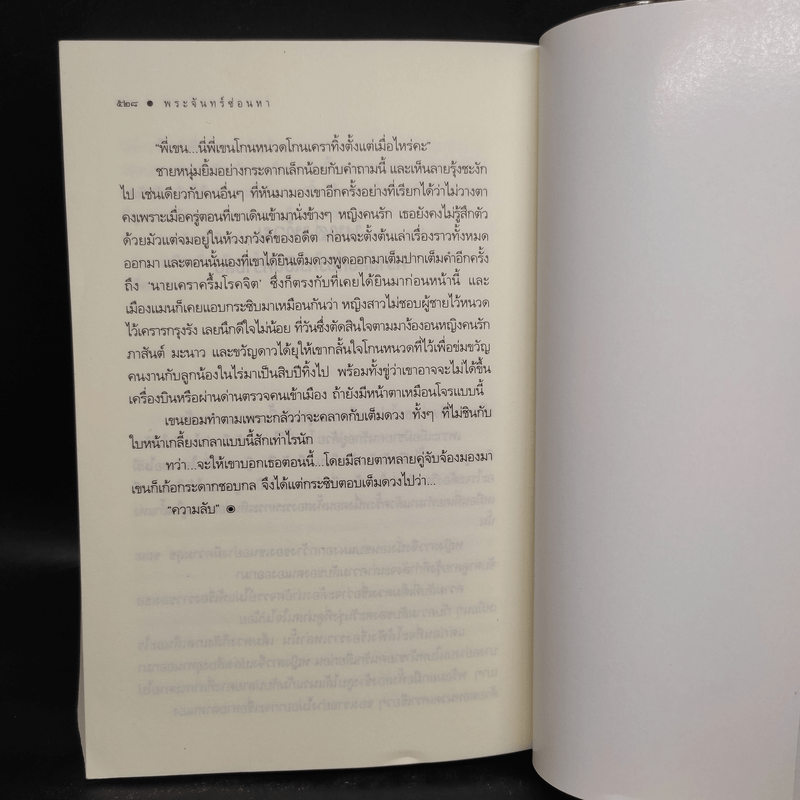 ๕๒๘ ● พระจันทร์ซ่อนหา
“พี่เขน...นี่พี่เขนโกนหนวดโกนเคราทิ้งตั้งแต่เมื่อไหร่คะ”
ชายหนุ่มยิ้มอย่างกระดากเล็กน้อยกับคำถามนี้ และเห็นลายรุ้งชะงัก
ไป เช่นเดียวกับคนอื่นๆ ที่หันมามองเขาอีกครั้งอย่างที่เรียกได้ว่าไม่วางตา
คงเพราะเมื่อครู่ตอนที่เขาเดินเข้ามานั่งข้างๆ หญิงคนรัก เธอยังคงไม่รู้สึกตัว
ด้วยมัวแต่จมอยู่ในห้วงภวังค์ของอดีต ก่อนจะตั้งต้นเล่าเรื่องราวทั้งหมด
ออกมา และตอนนั้นเองที่เขาได้ยินเต็มดวงพูดออกมาเต็มปากเต็มคำอีกครั้ง
ถึง ‘นายเคราครึ้มโรคจิต’ ซึ่งก็ตรงกับที่เคยได้ยินมาก่อนหน้านี้ และ
เมืองแมนก็เคยแอบกระซิบมาเหมือนกันว่า หญิงสาวไม่ชอบผู้ชายไว้หนวด
ไว้เครารกรุงรัง เลยนึกดีใจไม่น้อย ที่วันซึ่งตัดสินใจตามมาง้องอนหญิงคนรัก
ภาสันต์ มะนาว และขวัญดาวได้ยุให้เขากลั้นใจโกนหนวดที่ไว้เพื่อข่มขวัญ
คนงานกับลูกน้องในไร่มาเป็นสิบปีทิ้งไป พร้อมทั้งขู่ว่าเขาอาจจะไม่ได้ขึ้น
เครื่องบินหรือผ่านด่านตรวจคนเข้าเมือง ถ้ายังมีหน้าตาเหมือนโจรแบบนี้
เขนยอมทำตามเพราะกลัวว่าจะคลาดกับเต็มดวง ทั้งๆ ที่ไม่ชินกับ
ใบหน้าเกลี้ยงเกลาแบบนี้สักเท่าไรนัก
ทว่า...จะให้เขาบอกเธอตอนนี้...โดยมีสายตาหลายคู่จับจ้องมองมา
เขนก็เก้อกระดากชอบกล จึงได้แต่กระซิบตอบเต็มดวงไปว่า...
“ความลับ” ◉